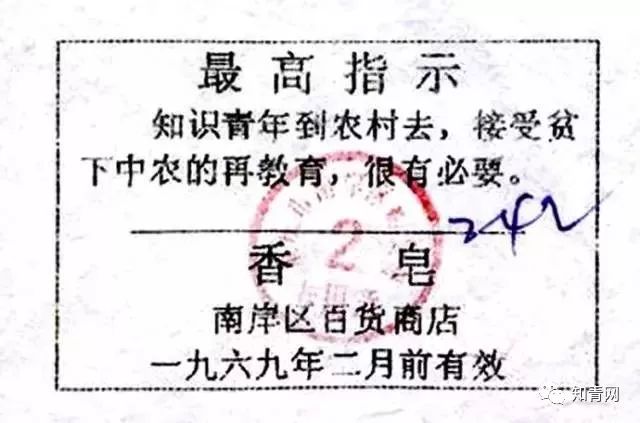 最高指示
知识青年到农村去，接受贫
下中农的再教育，很有必要。
242
2
香皂
南岸区百货商店
一九六九年二月前有效
知青网